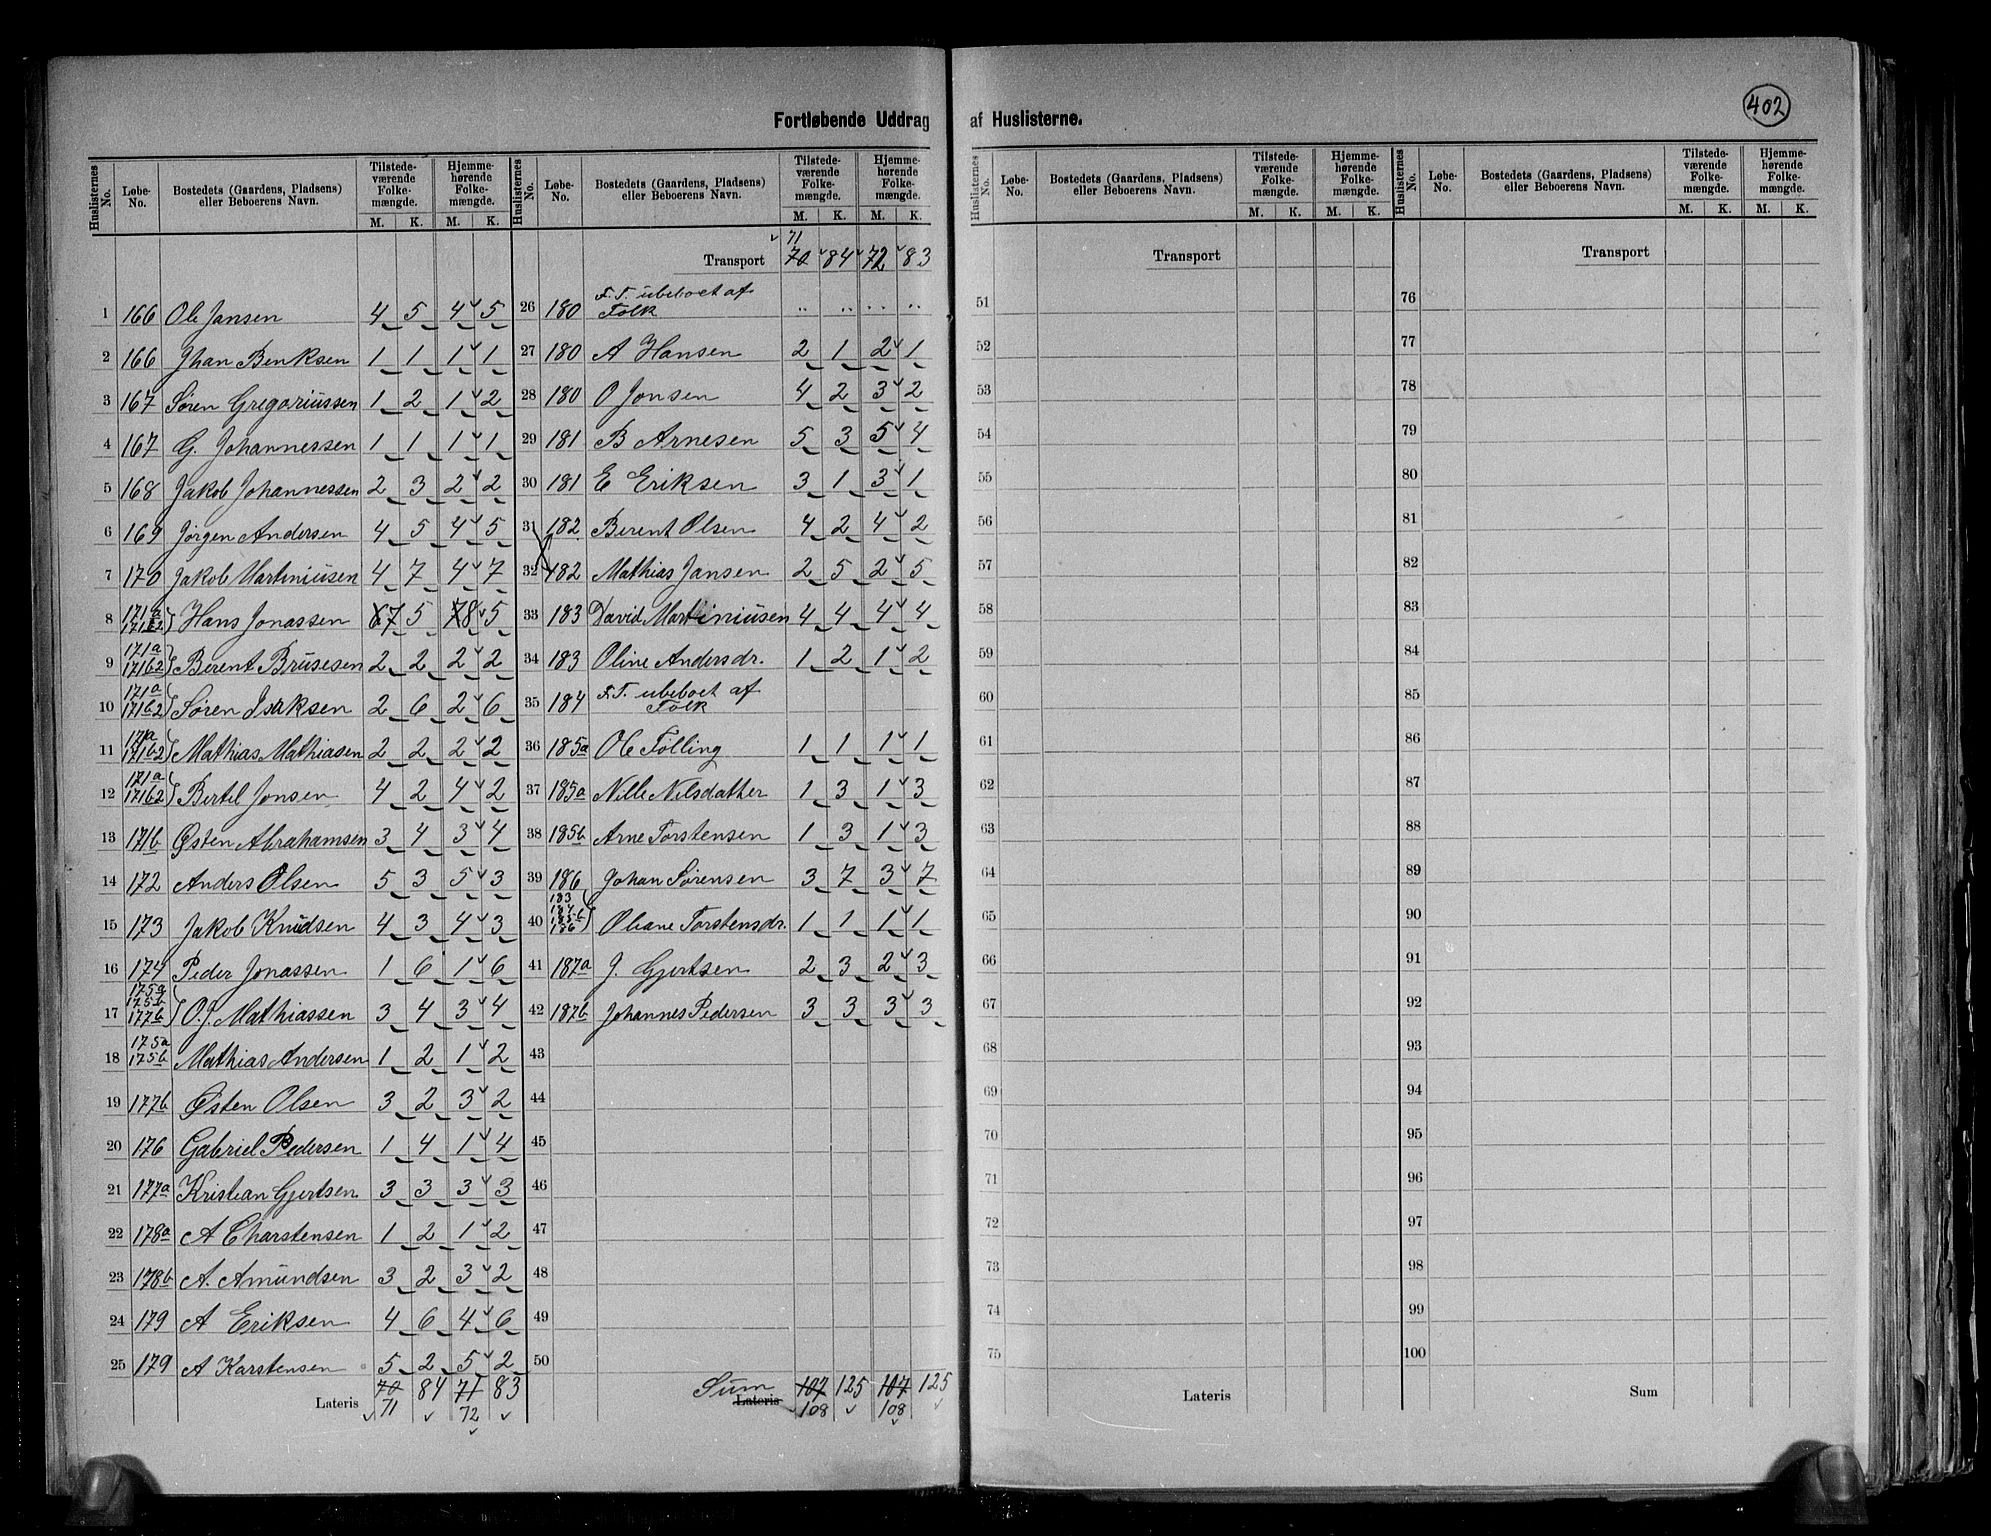 402
Fortløbende Uddrag af Huslisterne.
Huslisternes No. | Løbe-No. | Bostedets (Gaardens, Pladsens) eller Beboerens Navn. | Tilstedeværende Folkemængde. M. K. | Hjemmehørende Folkemængde. M. K.
1 166 Ole Jansen 4 5 4 5
2 166 Jhan Benksen 1 1 1 1
3 167 Søren Gregoriussen 1 2 1 2
4 167 G. Johannessen 1 1 1 1
5 168 Jakob Johannessen 2 3 2 2
6 169 Jørgen Andersen 4 5 4 5
7 170 Jakob Martiniusen 4 7 4 7
8 171a 171b2 Hans Jonassen 7 5 8 5
9 171a 171b2 Berent Brusesen 2 2 2 2
10 171a 171b2 Søren Isaksen 2 6 2 6
11 171a 171b2 Mathias Mathiasen 2 2 2 2
12 171a 171b2 Bertel Jonsen 4 2 4 2
13 171b Østen Abrahamsen 3 4 3 4
14 172 Anders Olsen 5 3 5 3
15 173 Jakob Knudsen 4 3 4 3
16 174 Peder Jonassen 1 6 1 6
17 175a 175b 177b O. J. Mathiassen 3 4 3 4
18 175a 175b Mathias Andersen 1 2 1 2
19 177b Østen Olsen 3 2 3 2
20 176 Gabriel Pedersen 1 4 1 4
21 177a Kristian Gjertsen 3 3 3 3
22 178a A Charstensen 1 2 1 2
23 178b A. Amundsen 3 2 3 2
24 179 A Eriksen 4 6 4 6
25 179 A Karstensen 5 2 5 2
Lateris 70 84 71 83
71 72
Huslisternes No. | Løbe-No. | Bostedets (Gaardens, Pladsens) eller Beboerens Navn. | Tilstedeværende Folkemængde. M. K. | Hjemmehørende Folkemængde. M. K.
71
Transport 70 84 72 83
26 180 F. T. ubeboet af Folk
27 180 A Hansen 2 1 2 1
28 180 O Jonsen 4 2 3 2
29 181 B Arnesen 5 3 5 4
30 181 E Eriksen 3 1 3 1
31 182 Berent Olsen 4 2 4 2
32 182 Mathias Jansen 2 5 2 5
33 183 David Martiniusen 4 4 4 4
34 183 Oline Andersdr. 1 2 1 2
35 184 F. T. ubeboet af Folk
36 185a Ole Følling 1 1 1 1
37 185a Nille Nilsdatter 1 3 1 3
38 185b Arne Torstensen 1 3 1 3
39 186 Johan Sørensen 3 7 3 7
40 183 184 185b 186 Oliane Torstensdr. 1 1 1 1
41 187a J. Gjertsen 2 3 2 3
42 187b Johannes Pedersen 3 3 3 3
43
44
45
46
47
48
49
50
Sum Lateris 107 125 107 125
108 108
Huslisternes No. | Løbe-No. | Bostedets (Gaardens, Pladsens) eller Beboerens Navn. | Tilstedeværende Folkemængde. M. K. | Hjemmehørende Folkemængde. M. K.
Transport
51
52
53
54
55
56
57
58
59
60
61
62
63
64
65
66
67
68
69
70
71
72
73
74
75
Lateris
Huslisternes No. | Løbe-No. | Bostedets (Gaardens, Pladsens) eller Beboerens Navn. | Tilstedeværende Folkemængde. M. K. | Hjemmehørende Folkemængde. M. K.
Transport
76
77
78
79
80
81
82
83
84
85
86
87
88
89
90
91
92
93
94
95
96
97
98
99
100
Sum